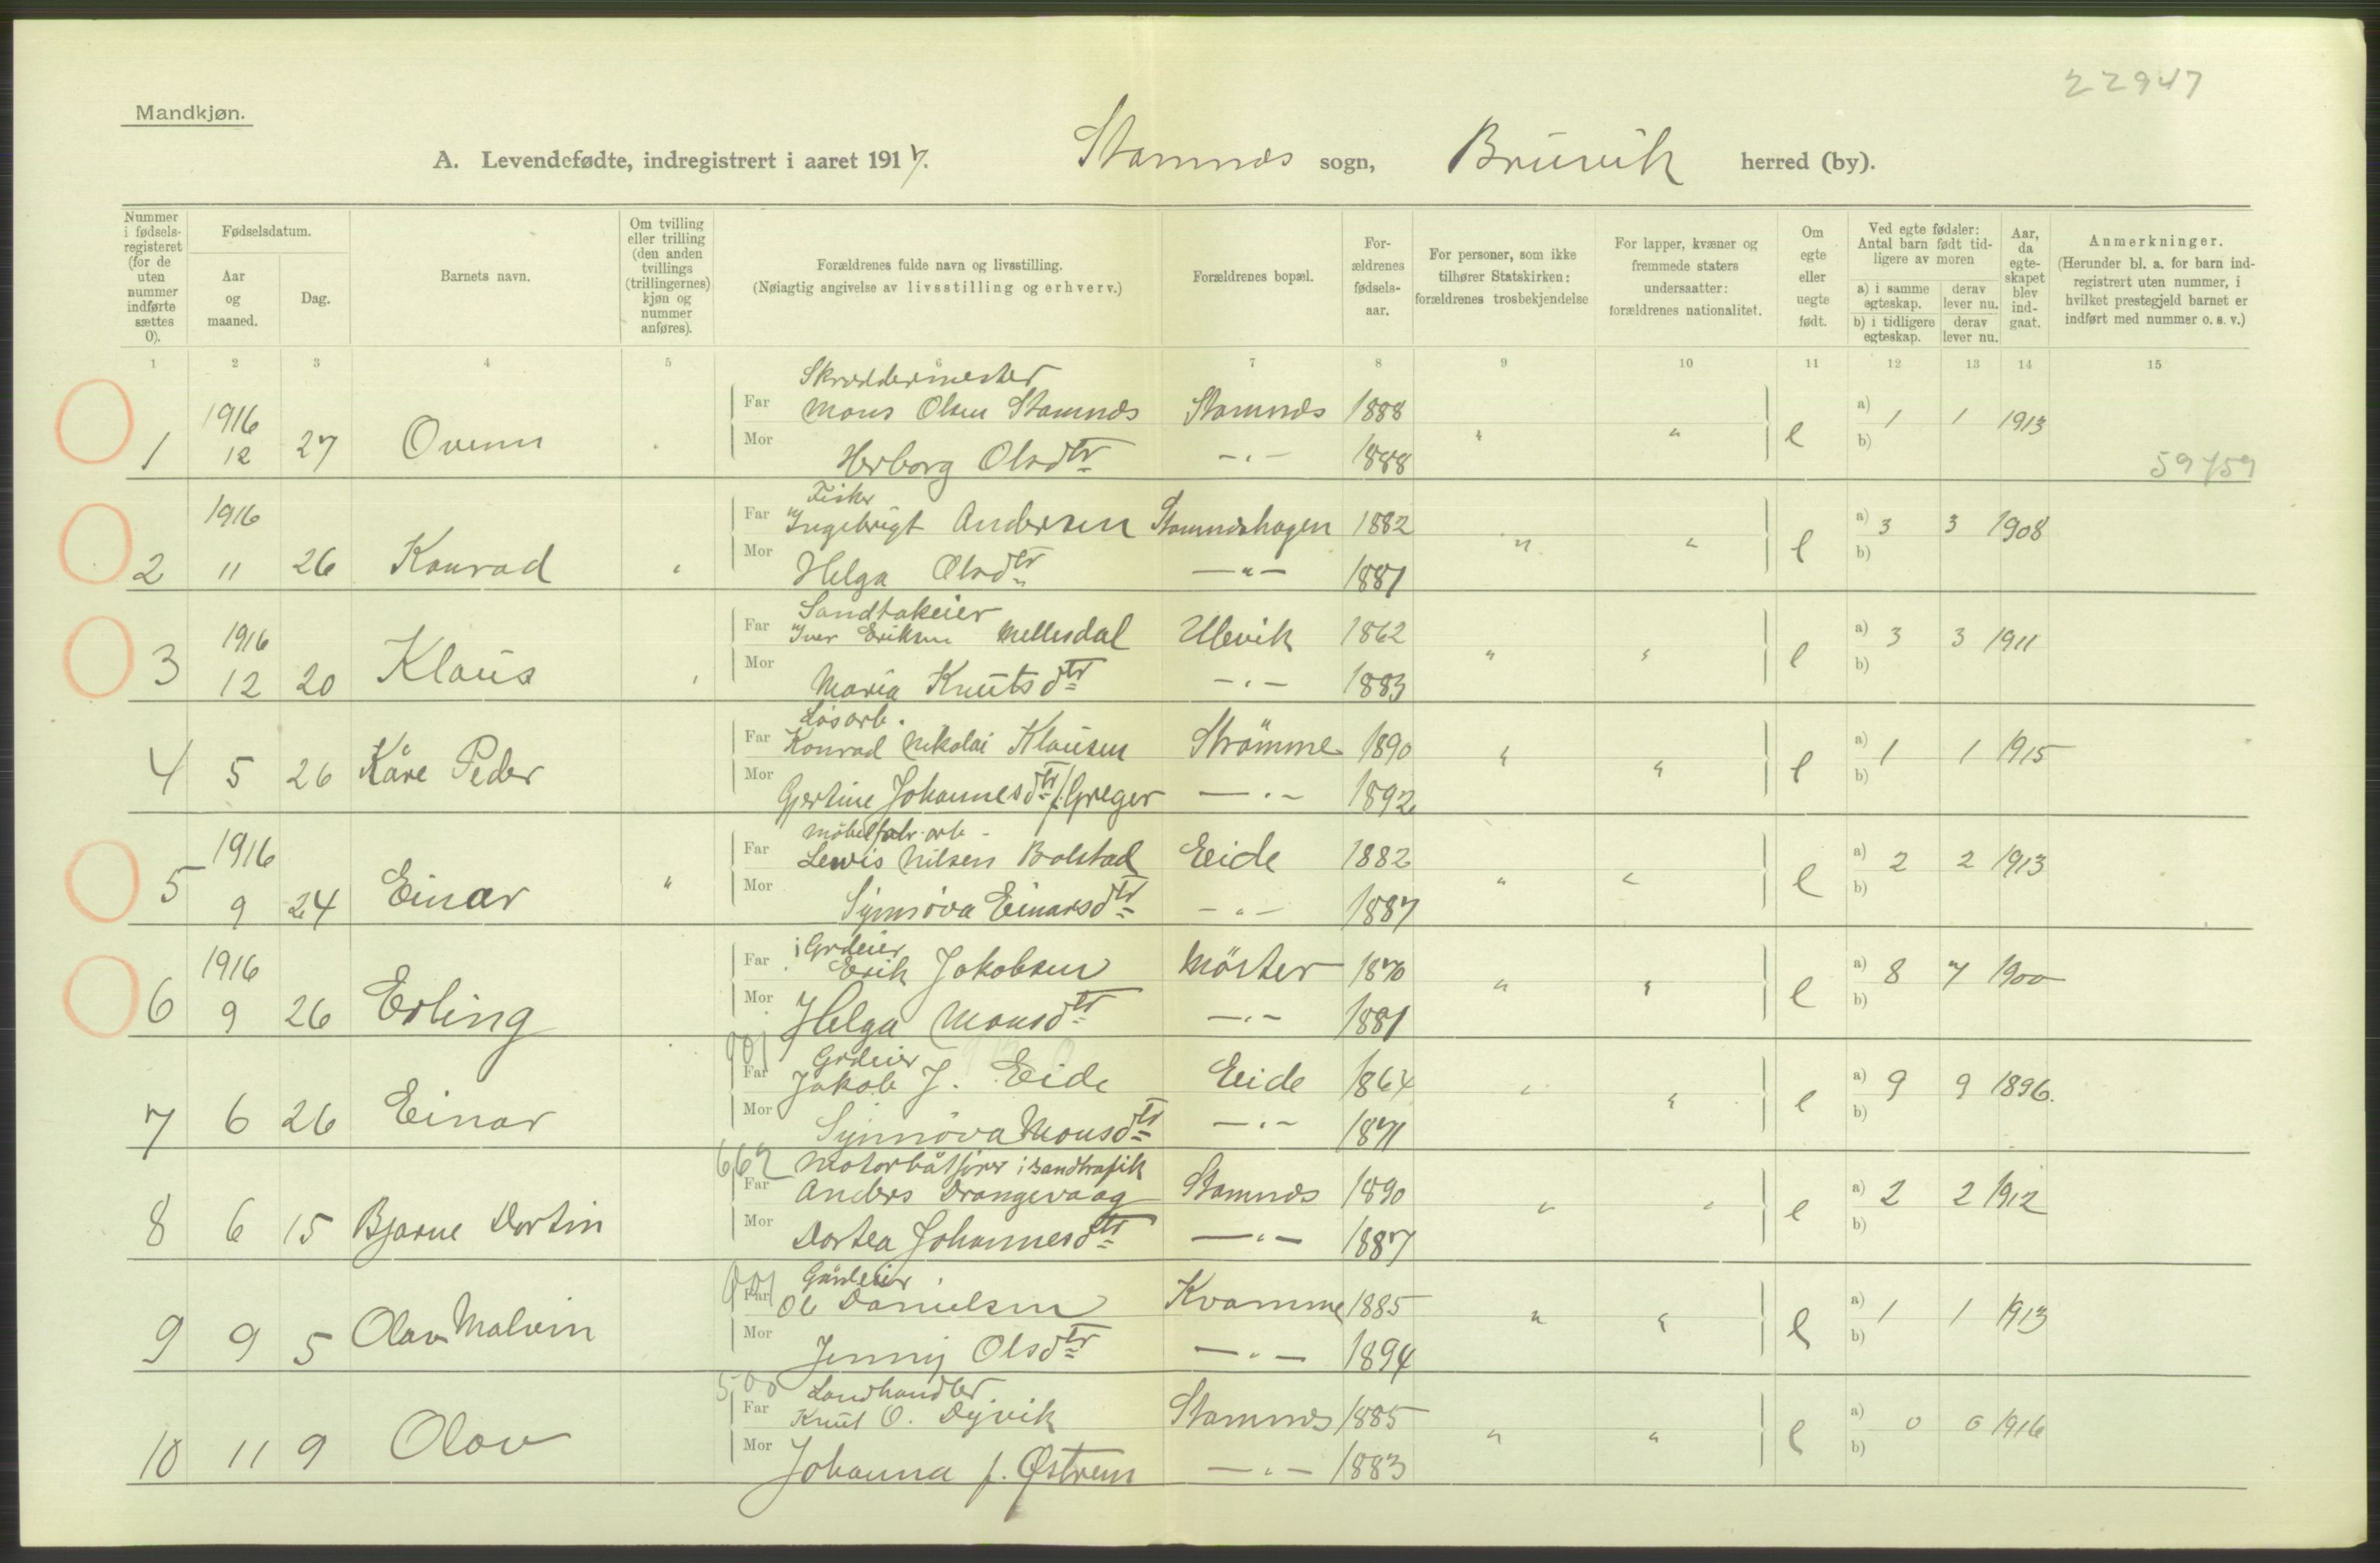 22947
Mandkjøn.
A. Levendefødte, indregistrert i aaret 1917. Stamnæs sogn, Bruvik herred (by).
Nummer i fødsels-registeret (for de uten nummer indførte sættes 0). Fødselsdatum. Aar og maaned. Dag. Barnets navn. Om tvilling eller trilling (den anden tvillings (trillingernes) kjøn og nummer anføres). Forældrenes fulde navn og livsstilling. (Nøiagtig angivelse av livsstilling og erhverv.) Forældrenes bopæl. For-ældrenes fødsels-aar. For personer, som ikke tilhører Statskirken: forældrenes trosbekjendelse For lapper, kvæner og fremmede staters undersaatter: forældrenes nationalitet. Om egte eller uegte født. Ved egte fødsler: Antal barn født tid-ligere av moren a) i samme egteskap. derav lever nu. b) i tidligere egteskap. derav lever nu. Aar, da egte-skapet blev ind-gaat. Anmerkninger. (Herunder bl. a. for barn ind-registrert uten nummer, i hvilket prestegjeld barnet er indført med nummer o. s. v.)
1 2 3 4 5 6 7 8 9 10 11 12 13 14 15
Skræddermester
1916 Far Mons Olsen Stamnæs Stamnæs 1888 a) 1 1 1913
1 12 27 Mor Herborg Olsdtr -"- 1888 " " e b)
59759
Fisker
1916 Far Ingebrigt Andersen Stamnæshagen 1882 a) 3 3 1908
2 11 26 Konrad " Mor Helga Olsdtr -"- 1881 " " e b)
Sandtakeier
1916 Far Iver Eriksen Mellesdal Ulevik 1862 a) 3 3 1911
3 12 20 Klaus " Mor Maria Knutsdtr -"- 1883 " " e b)
Løsarb.
Far Konrad Nikolai Klausen Strømme 1890 a) 1 1 1915
4 5 26 Kåre Peder Mor Gjertine Johannesdtr f. Greger -"- 1892 " " e b)
Møbelfabr.arb.
1916 Far Lewis Nilsen Bolstad Eide 1882 a) 2 2 1913
5 9 24 Einar " Mor Synnøva Einarsdtr -"- 1887 " " e b)
Grdeier
1916 Far Erik Jakobsen Møster 1870 a) 8 7 1900
6 9 26 Erling Mor Helga Monsdtr -"- 1881 " " e b)
001 Grdeier
Far Jakob J. Eide Eide 1864 a) 9 9 1896.
7 6 26 Einar Mor Synnøva Monsdtr -"- 1871 " " e b)
667 Motorbåtfører i sandtrafik
Far Anders Drangevaag Stamnæs 1890 a) 2 2 1912
8 6 15 Bjarne Dortin Mor Dortea Johannesdtr -"- 1887 " " e b)
001 Gårdeier
Far Ole Danielsen Kvamme 1885 a) 1 1 1913
9 9 5 Olav Malvin Mor Jenny Olsdtr -"- 1894 " " e b)
500 Landhandler
Far Knut O. Dyvik Stamnæs 1885 a) 0 0 1916
10 11 9 Olav Mor Johanna f. Østrem -"- 1883 " " e b)